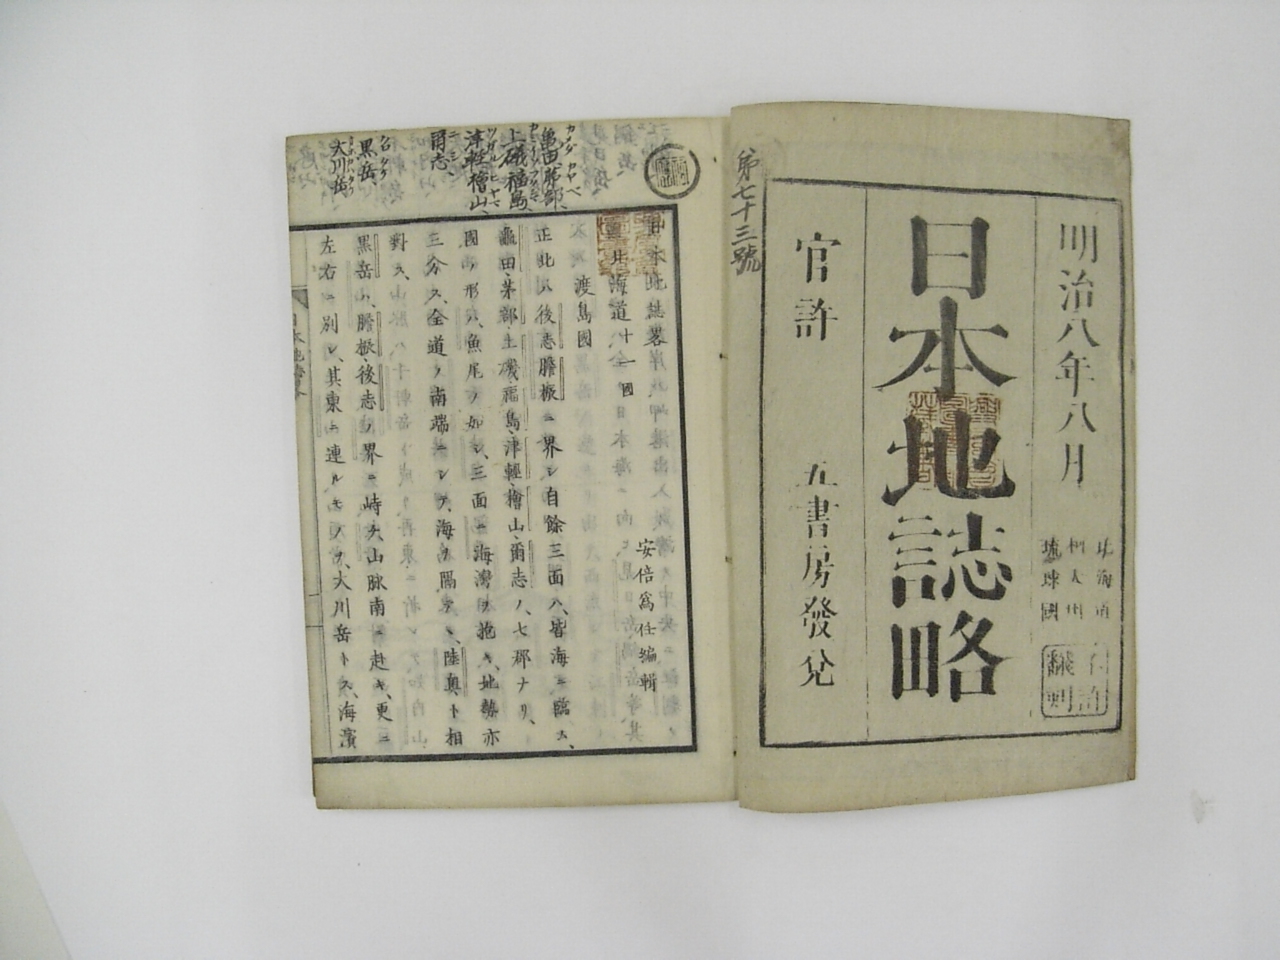 明治八年八月
北海道
樺太州
琉球國
官許
翻刻
日本地誌略
官許 五書房發兌
第七十三號
日本地誌畧
安倍爲任編輯
北海道 十一國
渡島國
正北ハ後志膽振ニ界シ自餘三面ハ皆海ニ臨ム、
龜田、茅部、上磯、福島、津輕、檜山、爾志ノ、七郡ナリ、
國ノ形ハ、魚尾ノ如シ、三面ニ海灣ヲ抱キ、地勢亦
三分ス、全道ノ南端ニシテ、海ヲ隔テヽ、陸奥ト相
對ス、山脈ハ
黒岳山、膽振、後志ノ界ニ峙チ、山脈南ニ赴キ、更ニ
左右ニ別レ、其東ニ連ルモノヲ、大川岳トス、海濱
亀田茅部
カメダ カヤベ
上磯福島
津軽檜山、
ツガル ヒヤマ
爾志、
ニシ
黒岳、
クロダケ
大川岳